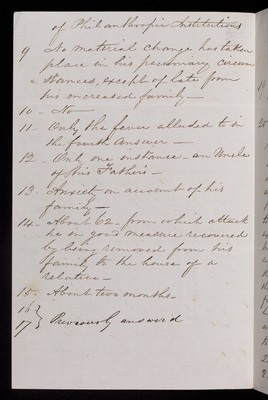 of Philanthropic Institutions
9 No material change has taken
place in his pecuniary circum
-stances, except of late from
his increased family -
10 - No -
11 - Only the fever alluded to in
the fourth Answer -
12 - Only one instance - an Uncle
of his Father's -
13 - Anxiety on account of his
family -
14 - About 62 - from which attack
he in good measure recovered
by being removed from his
family to the house of a
relative -
15 - About two months -
16 }
17 } Previously answer'd